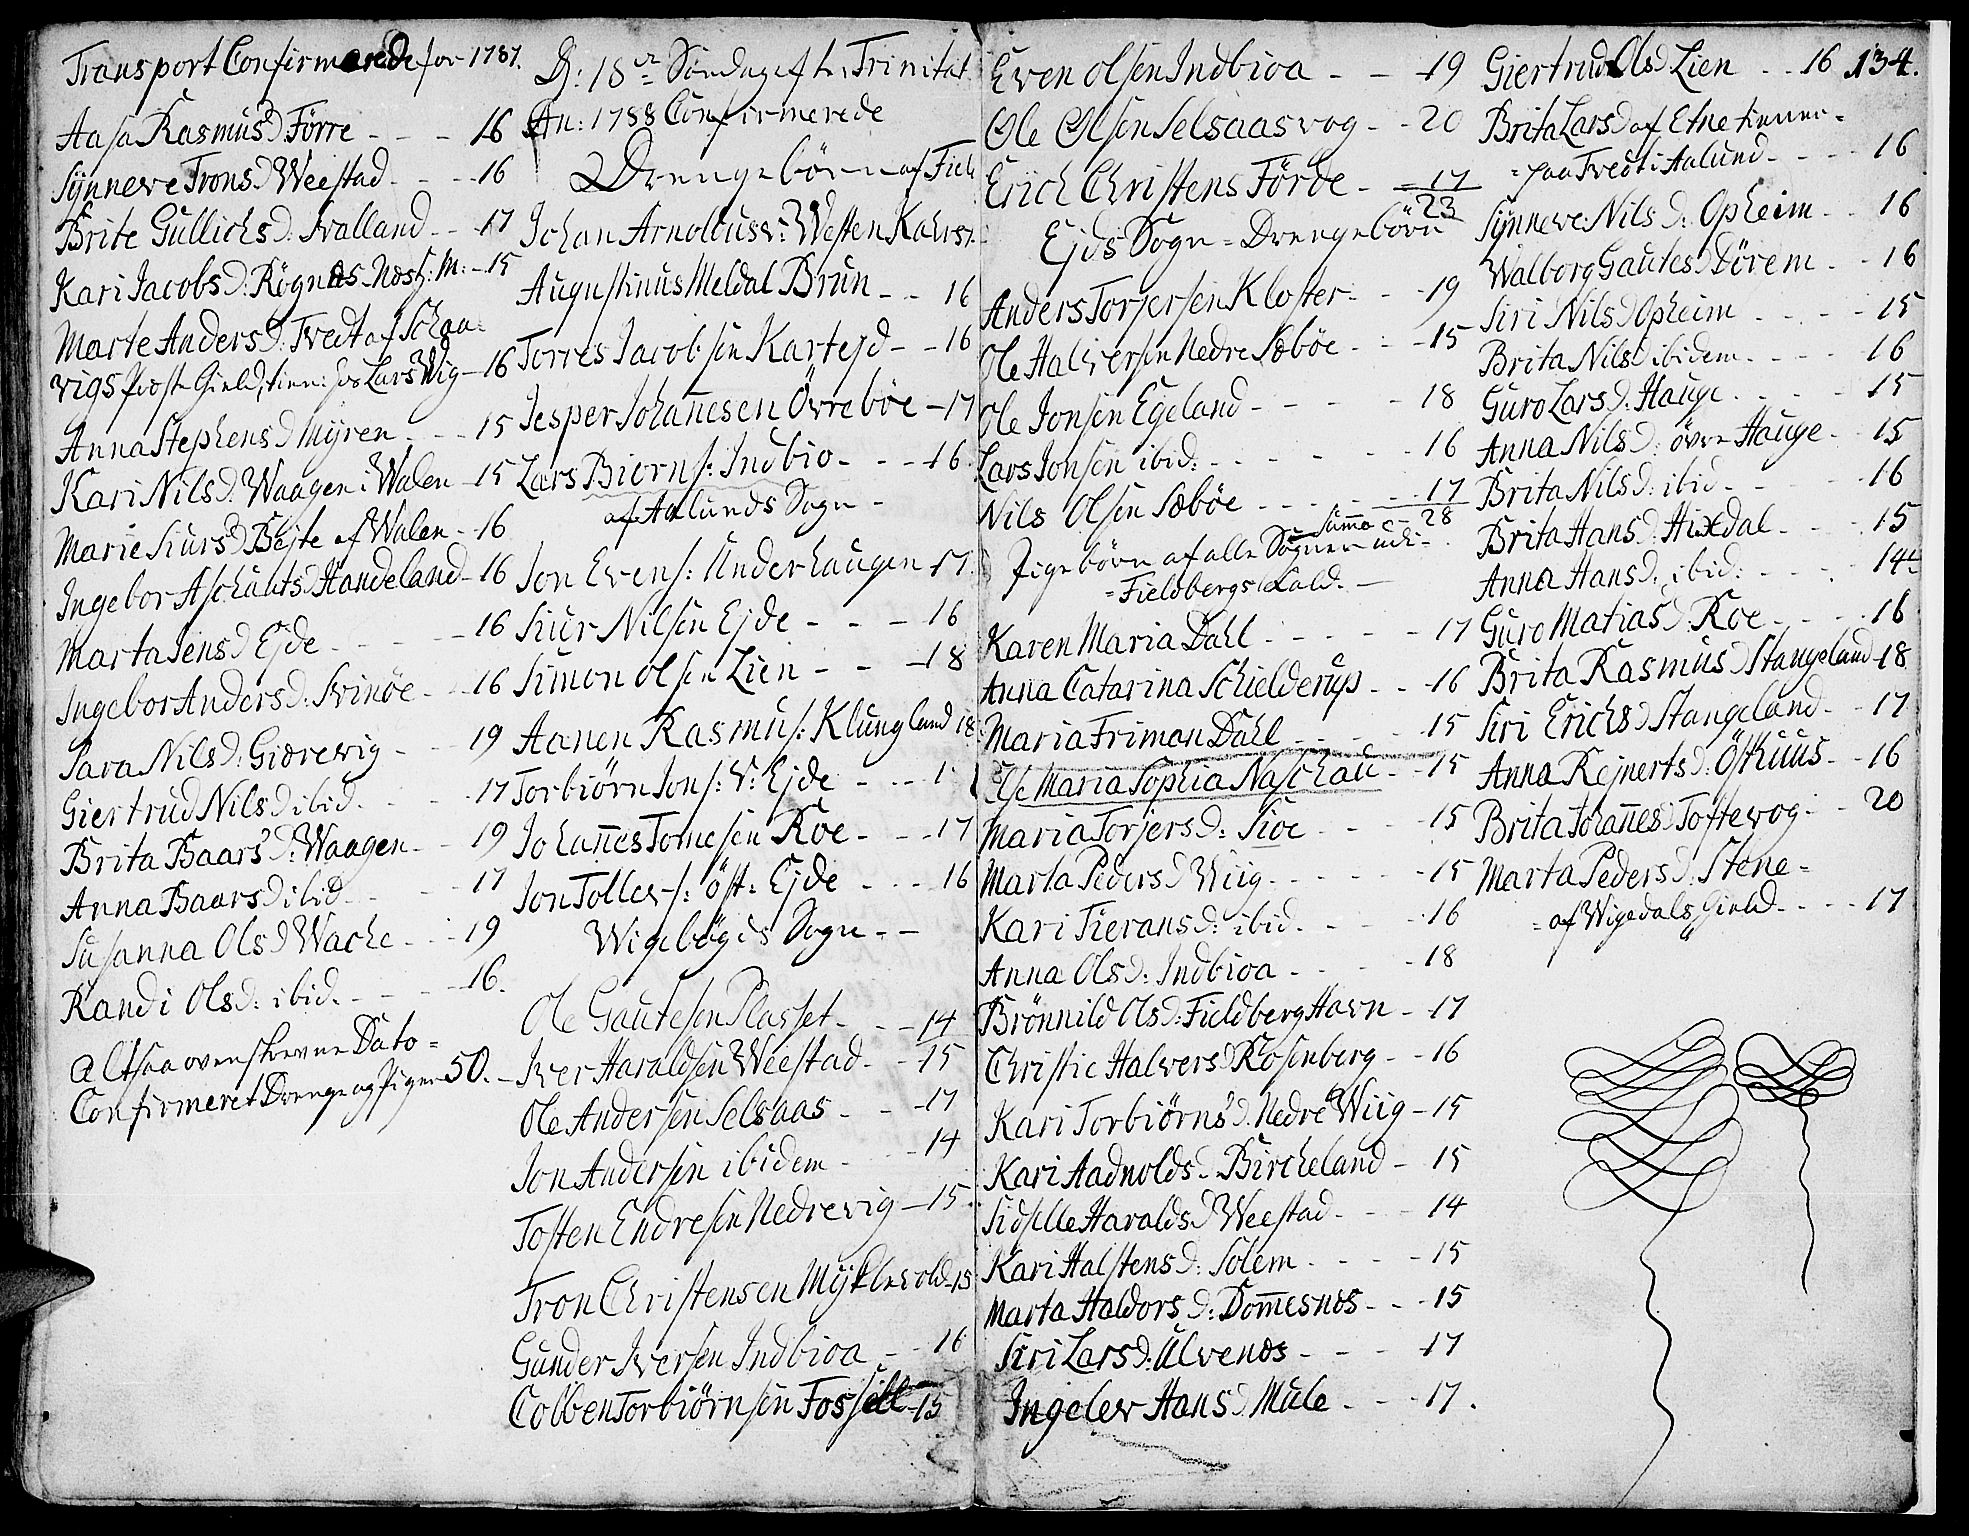 Transport Confirmerede for 1787.
Aasa Rasmusd Förre - - - 16
Synneve Tronsd Weestad - - - 16
Brite Gullichsd: Svalland - - 17
Kari Jacobsd: Rögnes - Nesh: M: - 15
Marte Andersd: Tvedt af Schaa=
vigs Præste Gield, tien: hos Lars Wig - 16
Anna Stephensd Myren - - - 15
Kari Nilsd: Waagen i Walen - 15
Marie Siursd Bejte af Walen - 16
Ingebor Aschautsd Handeland - 16
Marta Jensd Ejde - - - 16
Ingebor Andersd: Svinöe - - 16
Sara Nilsd: Gierevig - - - 19
Giertrud Nilsd ibid. - - - 17
Brita Baarsd: Waagen - - 19
Anna Baarsd ibid - - - 17
Susanna Olsd Wache - - - 19
Randi Olsd: ibid. - - - 16.
Altsaa ovenskrevne Dato =
Confirmeret Drenge og Piger 50.
D: 18de Söndag efter Trinitat
An: 1788 Confirmerede
Drengebörn af Field
Johan Arnoldus v: Westen Kahrs
Augustinus Meldal Brun - - 16
Torres Jacobsen Kartejd - - 16
Jesper Johannesen Övreböe - 17
Lars Biorns: Indbio - - - 16.
af Aalunds Sogn -
Jon Evens: Underhaugen 17.
Siur Nilsen Ejde - - - 16
Simon Olsen Lien - - - 18
Aanen Rasmus: Klungland 18
Torbiörn Jons: V: Ejde - - - 1
Johannes Tomesen Roe - - - 17
Jon Tollevs: öst: Ejde - - - 16
Wigebögds Sogn - -
Ole Gautesen Plasset - - - 14
Iver Haraldsen Weestad - - 15
Ole Andersen Selsaas - - - 17
Jon Andersen ibidem - - - 14
Tosten Endresen Nedrevig - 15
Tron Christensen Myklevold - 15
Gunder Iversen Indbioa - - 16
Colben Torbiörnsen Fossell - 15
Even Olsen Indbioa - - - 19
Ole Olsen Selsaasvog - - 20
Erich Christens Förde - 17
23
Ejds Sogn = Drengebörn
Anders Torjersen Kloster - - - 19
Ole Halversen Nedre Sæböe - - - 15
Ole Jonsen Egeland - - - - 18
Lars Jonsen ibid: - - - - - 16
Nils Olsen Sæböe - - - - - 17
Suma - 28
Pigebörn af alle Sogner udi =
= Fieldbergs Kald. -
Karen Maria Dahl - - - - 17
Anna Catarina Schielderup - - 16
Maria Friman Dahl - - - - 15
Else Maria Sophia Naschau - - 15
Maria Torjersd: Sioe - - - - 15
Marta Pedersd Wiig - - - - 15
Kari Tieransd: ibid. - - - 16
Anna Olsd: Indbioa - - - - 18
Brönnild Olsd: Fieldberg Havn - 17
Christie Halversd Rosenberg - - 16
Kari Torbiörnsd. Nedre Wiig - 15
Kari Aadnoldsd. Bircheland - 15
Sidselle Haraldsd Weestad - - - 14
Kari Halstensd: Solem - - - - 15
Marta Haldorsd: Domesnes - - - 15
Siri Larsd: Ulvenes - - - 17
Ingelev Hansd Mule - - - 17.
Giertrud Olsd Lien - - 16
134.
Brita Larsd af Etne tiener =
= paa Tvedt i Aalund - - - - 16
Synneve Nilsd: Opheim - - 16
Walborg Gautesd Dörem - - 16
Siri Nilsd Opheim - - - - 15
Brita Nilsd ibidem - - - - 16
Guro Larsd: Hauge - - - - 15
Anna Nilsd: övre Hauge - - 15
Brita Nilsd: ibid - - - - 16
Brita Hansd: Hixdal - - - - 15
Anna Hansd: ibid: - - - - 14
Guro Matiasd: Roe - - - - 16
Brita Rasmusd Stangeland - 18
Siri Erichsd Stangeland - - 17
Anna Rejnertsd: Östhuus - - 16
Brita Johannesd Toftevog - - 20
Marta Pedersd: Stene =
= af Wigedals Gield - - - - 17